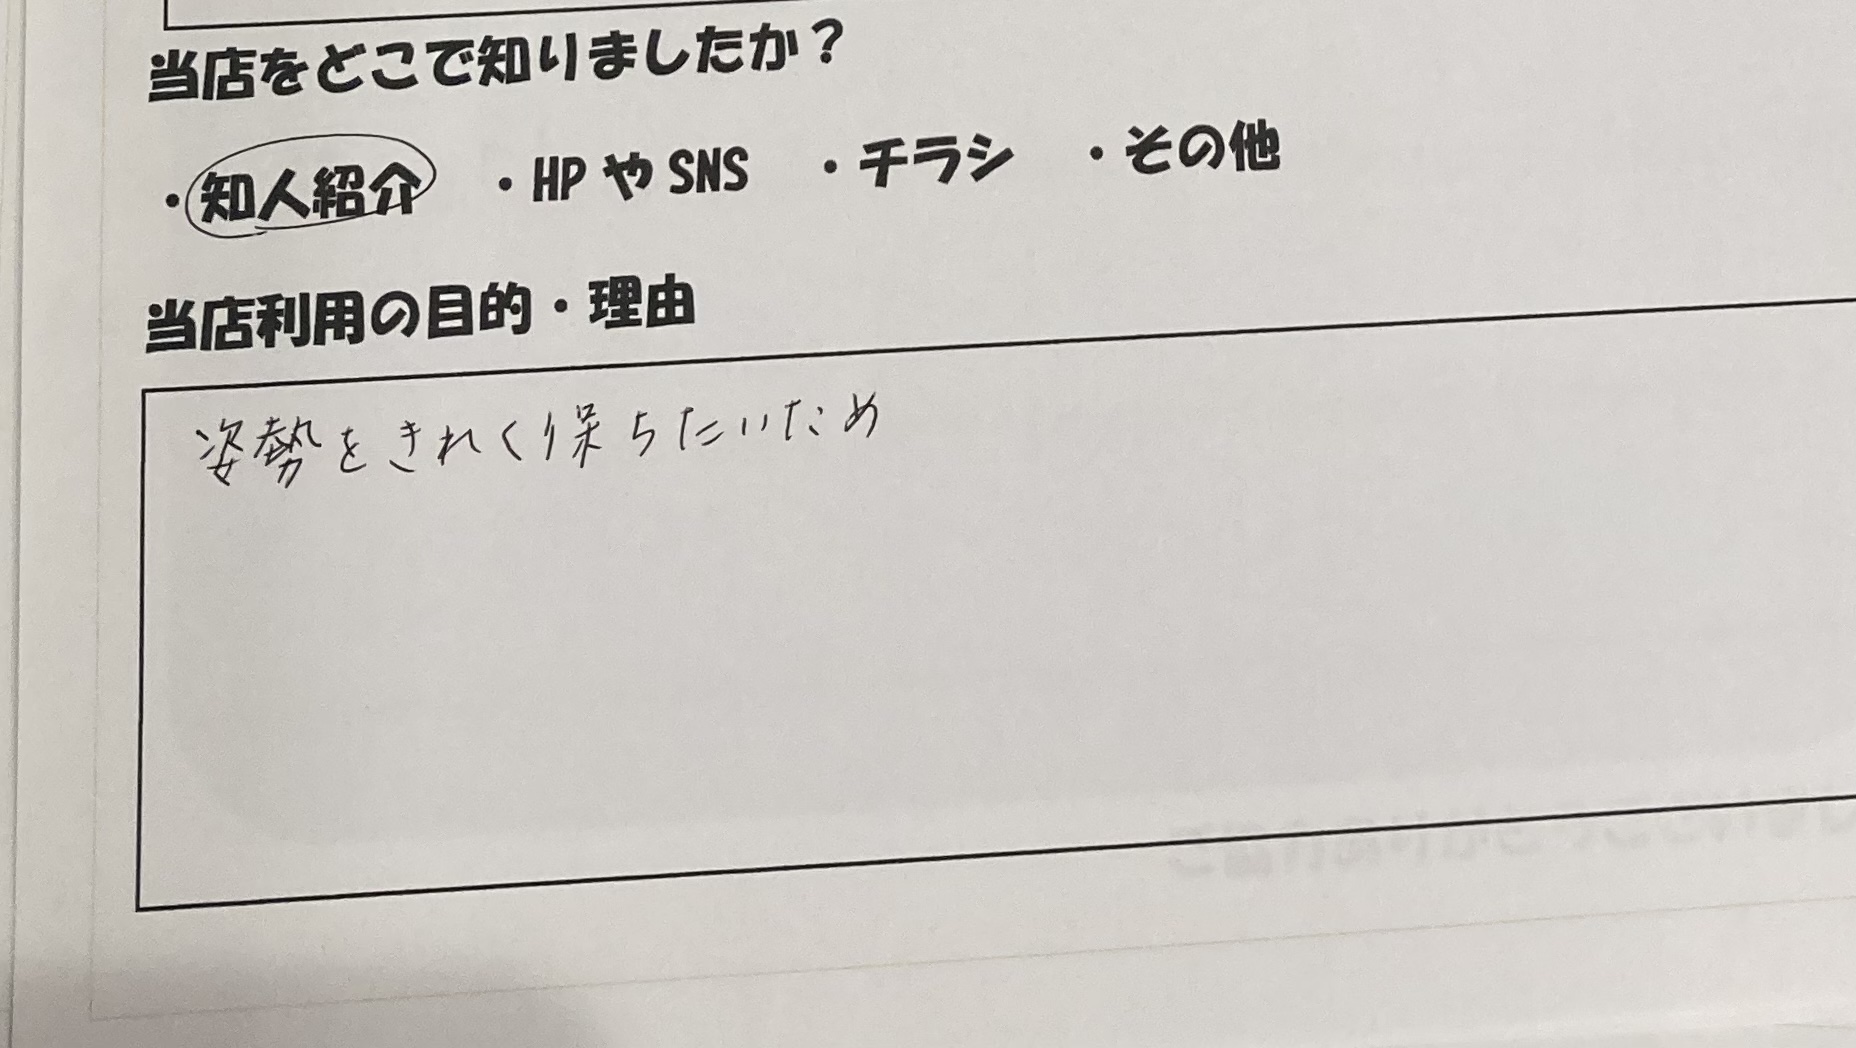 当店をどこで知りましたか？
・知人紹介　・HPやSNS　・チラシ　・その他
当店利用の目的・理由
姿勢をきれく保ちたいため